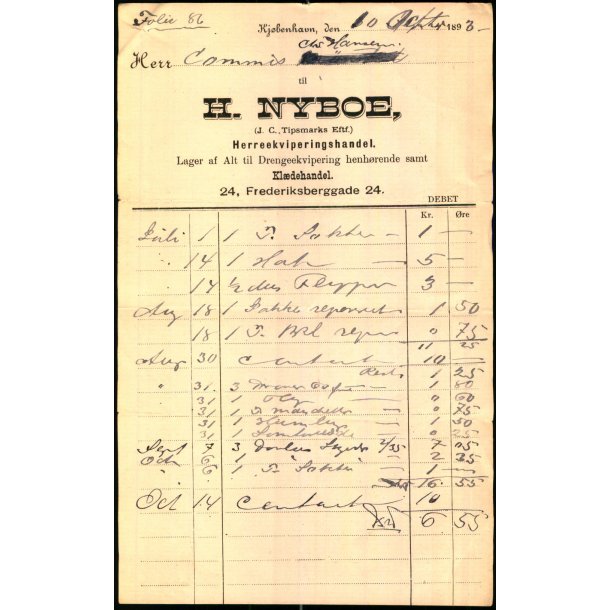 Folio 86
Kjøbenhavn, den 10 Octbr 1893-
Chr Hansen
Herr Commis
til
H. NYBOE,
(J. C. Tipsmarks Eftf.)
Herreekviperingshandel.
Lager af Alt til Drengeekvipering henhørende samt
Klædehandel.
24, Frederiksberggade 24.
DEBET
Kr. Øre
Juli 1 1 P. Sokker — 1 —
14 1 Hat — 5 —
14 ½ dus Flipper 3 —
Aug 18 1 Jakke reparert 1 50
18 1 P. Bkl repar 0 75
11 25
Aug 30 Contant 10 —
Rest 1 25
" 31 3 — 1 80
" 31 1 — 0 60
31 1 P. Manchetter — 0 75
31 1 — 1 50
31 1 0 25
Sept 7 3 2/35 7 05
Oct 6 1 " — 2 35
6 1 P. Sokker — 1 —
16 55
Oct 14 Contant 10
6 55